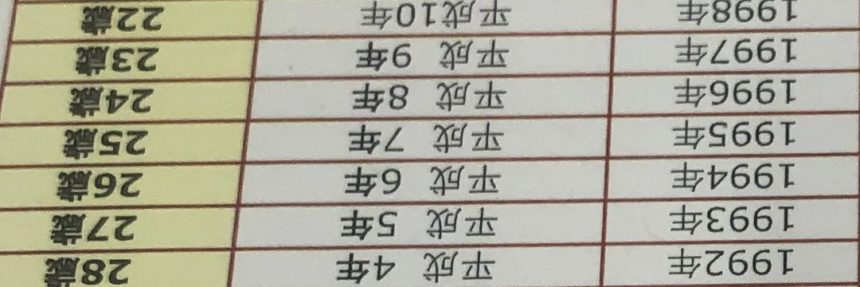 1992年 平成 4年 28歳
1993年 平成 5年 27歳
1994年 平成 6年 26歳
1995年 平成 7年 25歳
1996年 平成 8年 24歳
1997年 平成 9年 23歳
1998年 平成10年 22歳